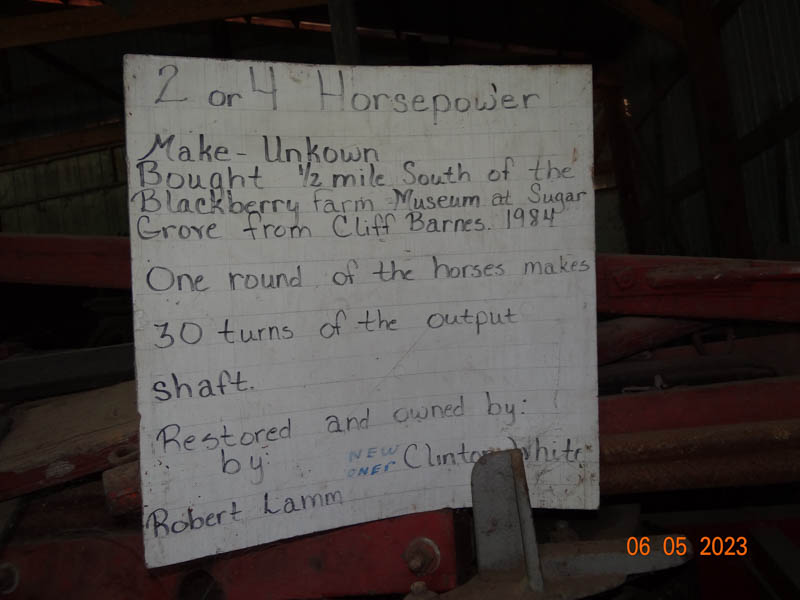 2 or 4 Horsepower
Make - Unkown
Bought 1/2 mile South of the
Blackberry farm Museum at Sugar
Grove from Cliff Barnes. 1984
One round of the horses makes
30 turns of the output
shaft.
Restored and owned by:
by:
NEW
ONER
Clinton White
Robert Lamm
06 05 2023